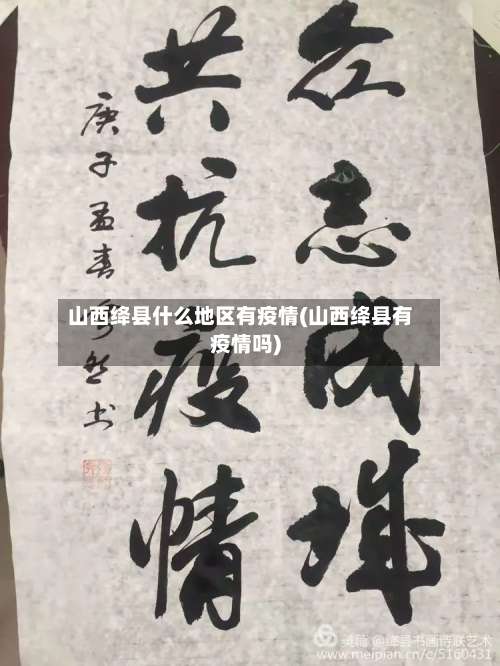 众志成城
共抗疫情
庚子孟春书
山西绛县什么地区有疫情(山西绛县有
疫情吗)
美篇 @绛县书画诗联艺术
www.meipian.cn/c/5160431